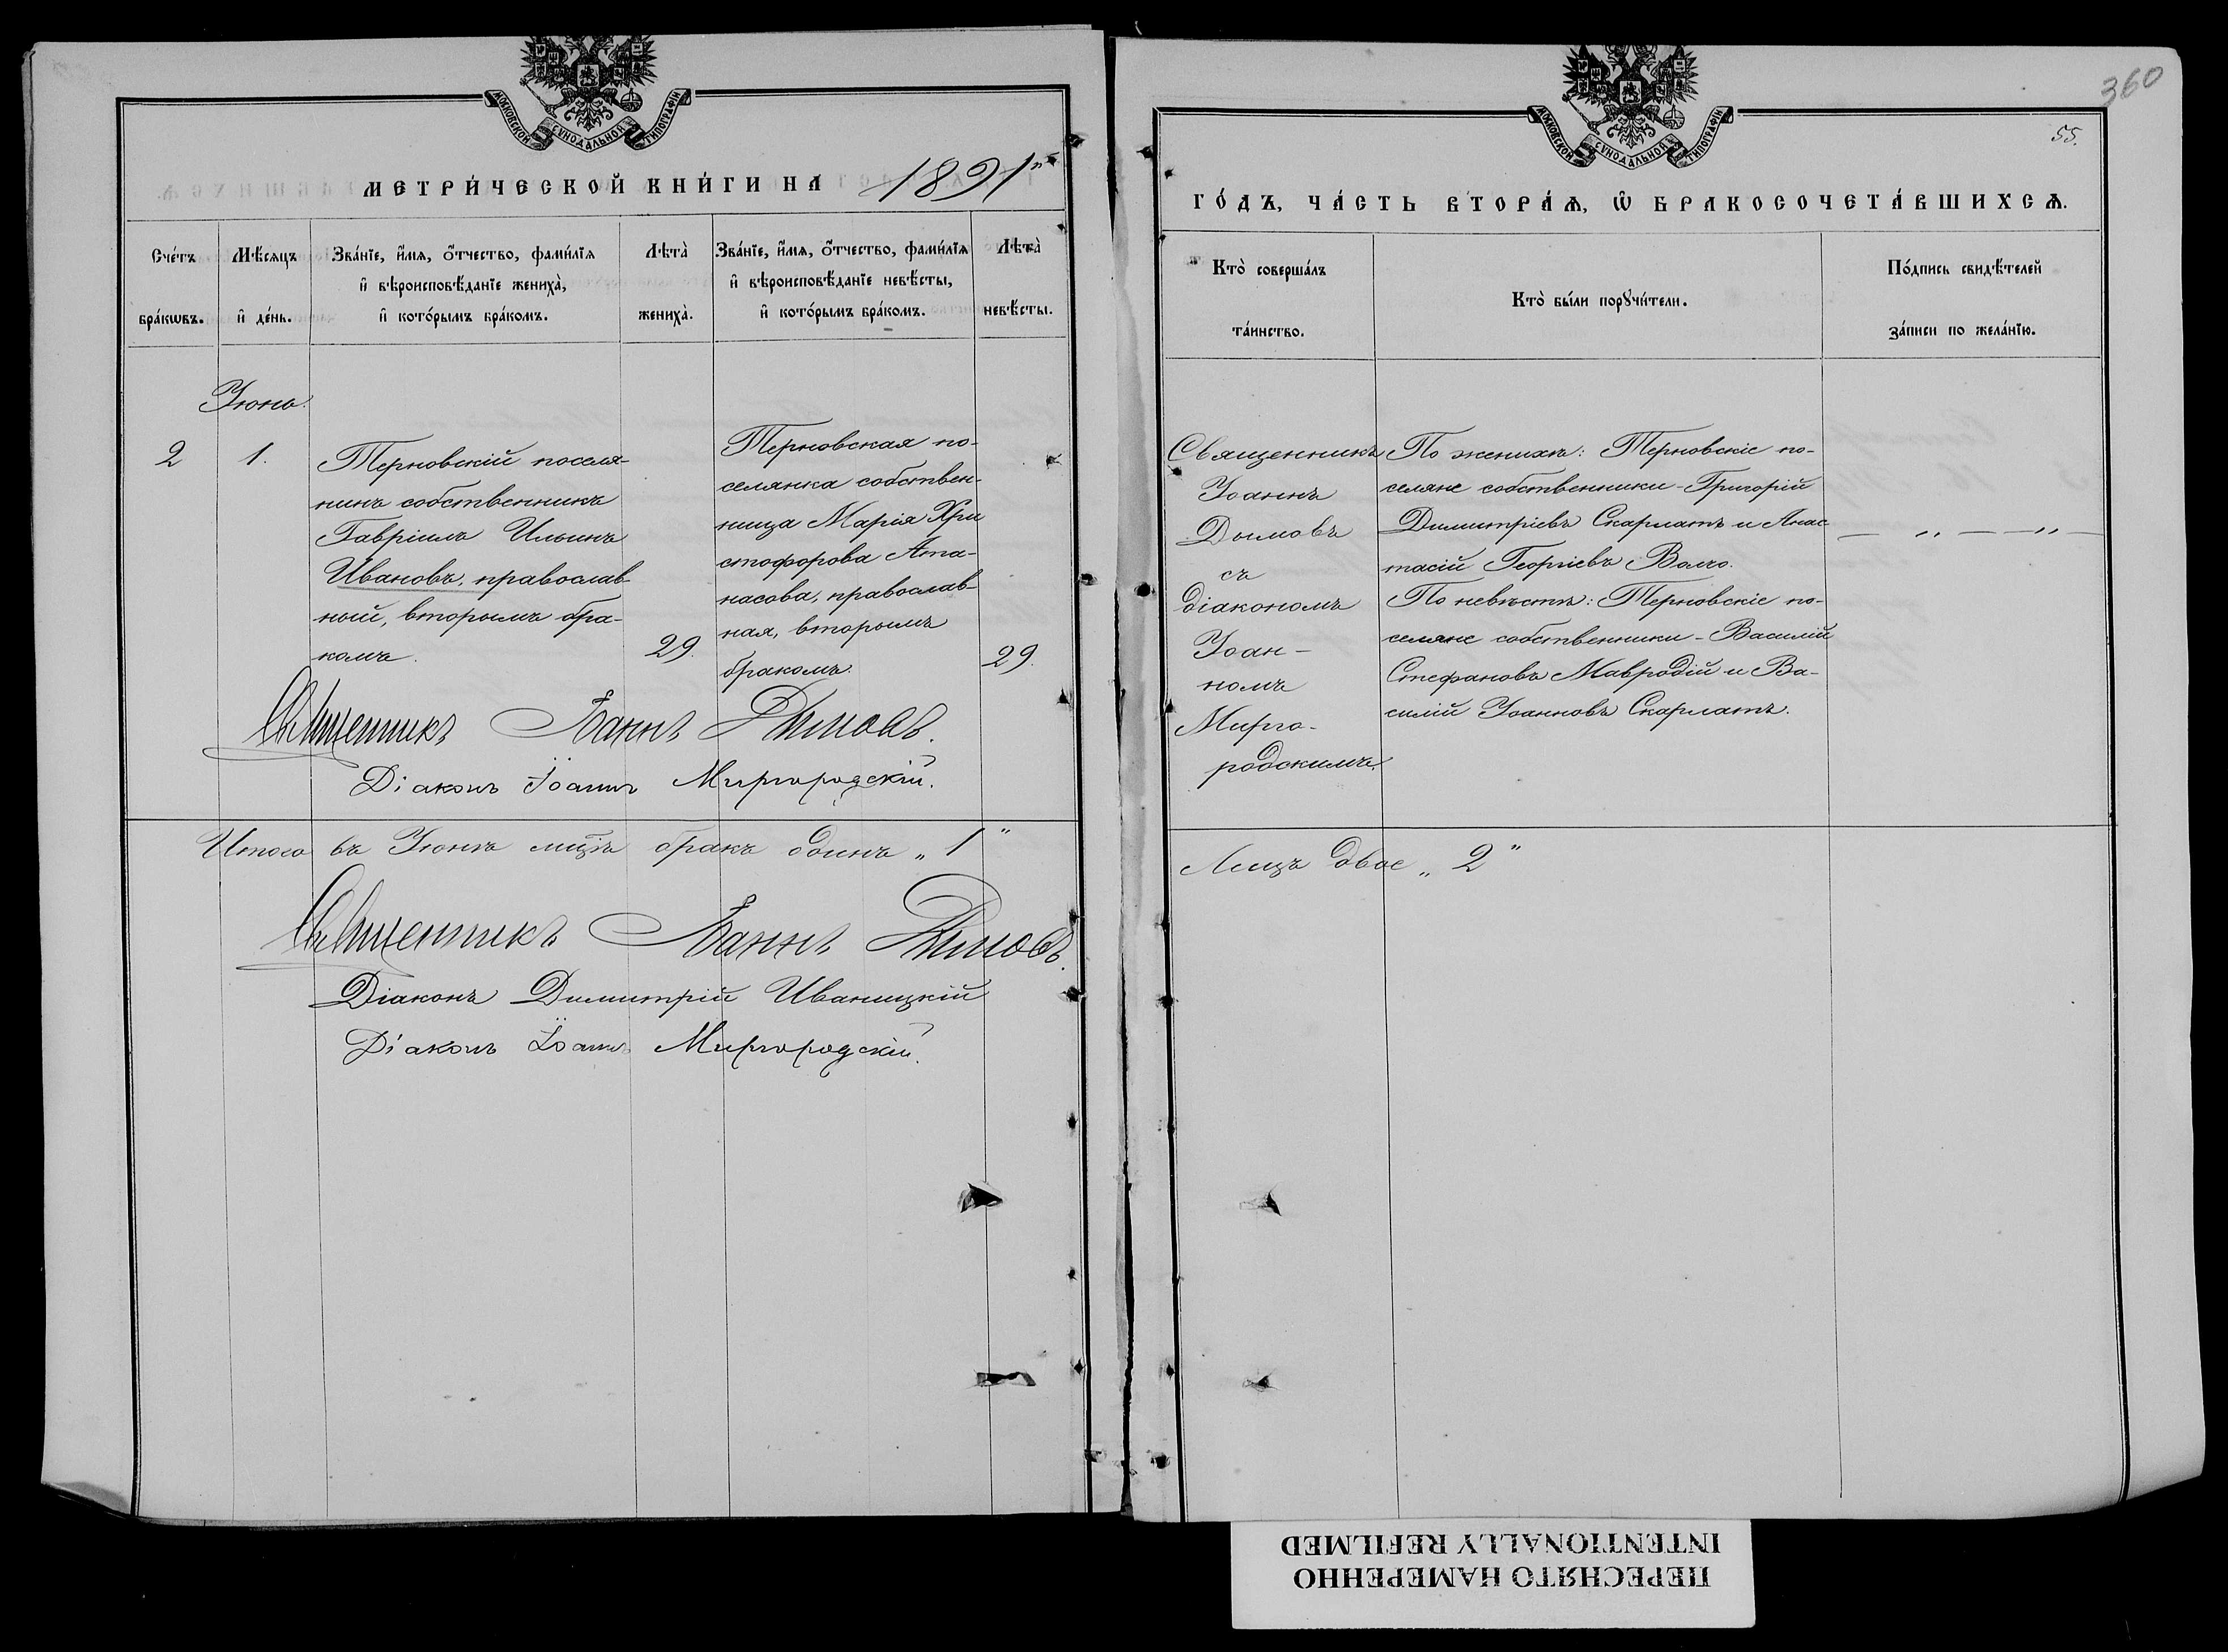 360
55.
МОСКОВСКОЙ СѴНОДАЛЬНОЙ ТИПОГРАФІИ
МЕТРИ́ЧЕСКОЙ КНИ́ГИ НА 1891й
Сче́тъ бра́кѡвъ.
Мѣ́сяцъ и҆ де́нь.
Зва́нїе, и҆́мѧ, ѻ҆́тчество, фами́лїѧ
и҆ вѣроисповѣ́данїе жениха̀,
и҆ кото́рымъ бра́комъ.
Лѣта̀ жениха̀.
Зва́нїе, и҆́мѧ, ѻ҆́тчество, фами́лїѧ
и҆ вѣроисповѣ́данїе невѣ́сты,
и҆ кото́рымъ бра́комъ.
Лѣта̀ невѣ́сты.
Іюнь.
2
1.
Терновскій поселя-
нинъ собственникъ
Гавріилъ Ильинъ
Ивановъ, православ-
ный, вторымъ бра-
комъ.
29.
Терновская по-
селянка собствен-
ница Марія Хри
стофорова Ата-
насова, православ-
ная, вторымъ
бракомъ.
29.
Священникъ Іоаннъ Дымовъ.
Діаконъ Іоаннъ Миргородскій.
Итого въ Іюнѣ мцѣ бракъ одинъ „1"
Священникъ Іоаннъ Дымовъ.
Діаконъ Димитрій Иваницкій
Діаконъ Іоаннъ Миргородскій.
МОСКОВСКОЙ СѴНОДАЛЬНОЙ ТИПОГРАФІИ
ГО́ДЪ, ЧА́СТЬ ВТОРА́Ѧ, Ѽ БРАКОСОЧЕТА́ВШИХСѦ.
Кто̀ соверша́лъ
та́инство.
Кто̀ бы́ли порꙋчи́тели.
По́дпись свидѣ́телей
за́писи по жела́нїю.
Священникъ
Іоаннъ
Дымовъ
съ
діакономъ
Іоан-
номъ
Мирго-
родскимъ.
По женихѣ: Терновскіе по-
селяне собственники - Григорій
Димитріевъ Скарлатъ и Анас
тасій Георгіевъ Волчо.
По невѣстѣ: Терновскіе по-
селяне собственники - Василій
Стефановъ Мавродій и Ва-
силій Іоанновъ Скарлатъ.
— „ — „ —
Лицъ двое „2"
ПЕРЕСНЯТО НАМЕРЕННО
INTENTIONALLY REFILMED